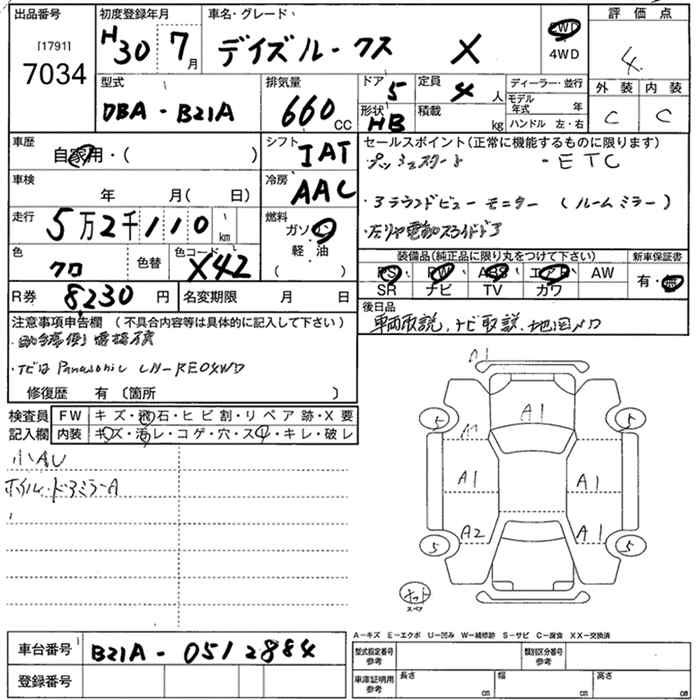 出品番号
[1791]
7034
初度登録年月
H30 7月
車名・グレード
デイズルークス X
2WD
4WD
評価点
4
外装 内装
C C
型式
DBA - B21A
排気量
660 CC
ドア 5
形状 HB
定員 4 人
積載 kg
ディーラー・並行
モデル年式 年
ハンドル 左・右
車歴
自家用・( )
車検
年 月( 日)
走行
5万2千110 km
色
クロ
色替
色コード
X42
シフト
IAT
冷房
AAC
燃料
ガソリン
軽・油
( )
R券
8,230 円
名変期限 月 日
セールスポイント(正常に機能するものに限ります)
・プッシュスタート ・ETC
・アラウンドビューモニター (ルームミラー)
・左リヤ電動スライドドア
装備品(純正品に限り丸をつけて下さい)
PS PW ABS エアB AW
SR ナビ TV カワ
新車保証書
有・無
後日品
車両取説、ナビ取説、地図メロ
注意事項申告欄 (不具合内容等は具体的に記入して下さい)
・ナビは Panasonic CN-RE04WD
修復歴 有 〔箇所 〕
検査員
記入欄
FW キズ・飛石・ヒビ割・リペア跡・X要
内装 キズ・汚レ・コゲ・穴・スレ・キレ・破レ
小AU
ホイル・ドアミラーA
A1
A1
A1
A1
A1
A2
A1
5
5
5
5
スペア
A－キズ E－エクボ U－凹み W－補修跡 S－サビ C－腐食 XX－交換済
車台番号
B21A - 0512884
登録番号
型式指定番号
参考
類別区分番号
参考
車庫証明用
参考
長さ cm
幅 cm
高さ cm